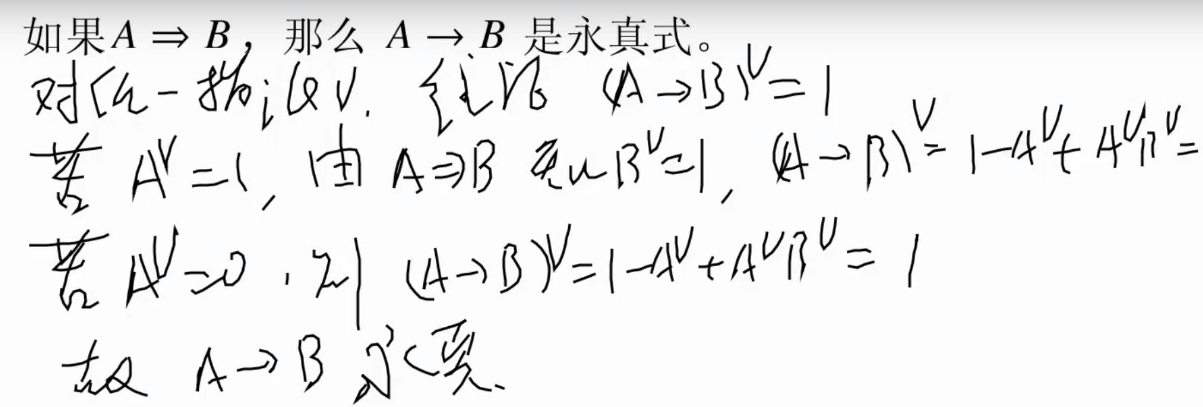 如果 A ⇒ B，那么 A → B 是永真式。
对任一指派 v. 往证 (A→B)^v = 1
若 A^v = 1, 由 A⇒B 知 B^v = 1, (A→B)^v = 1-A^v + A^v B^v =
若 A^v = 0, 则 (A→B)^v = 1-A^v + A^v B^v = 1
故 A→B 永真.